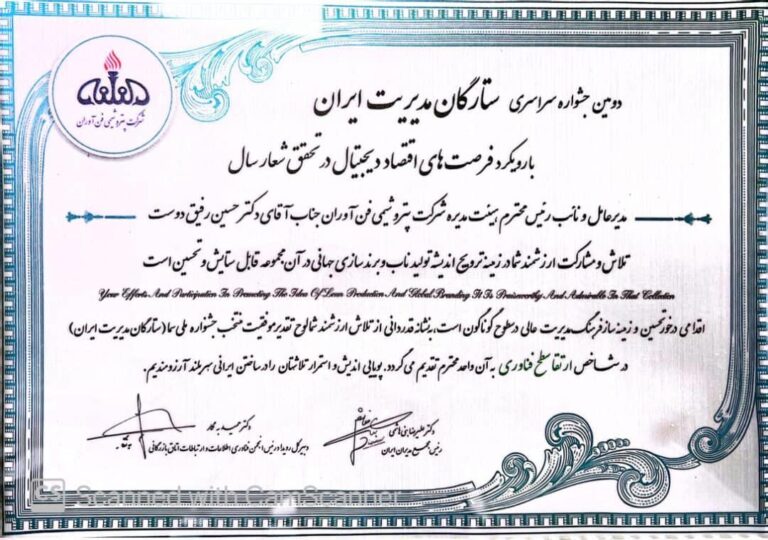 شرکت پتروشیمی فن آوران
دومین جشنواره سراسری ستارگان مدیریت ایران
بارویکرد فرصت های اقتصاد دیجیتال در تحقق شعار سال
مدیرعامل و نائب رئیس محترم هیئت مدیره شرکت پتروشیمی فن آوران جناب آقای دکتر حسین رفیق دوست
تلاش و مشارکت ارزشمند شما در زمینه ترویج اندیشه تولید ناب و برندسازی جهانی در آن مجموعه قابل ستایش و تحسین است
Your Efforts And Participation In Promoting The Idea Of Lean Production And Global Branding It Is Praiseworthy And Admirable In That Collection
اقدامی درخور تحسین و زمینه ساز فرهنگ مدیریت عالی در سطوح گوناگون است، به نشانه قدردانی از تلاش ارزشمند شما لوح تقدیر موفقیت منتخب جشنواره ملی سما (ستارگان مدیریت ایران)
در شاخص ارتقا سطح فناوری به آن واحد محترم تقدیم می گردد. پویایی اندیش و استمرار تلاشتان را در ساختن ایرانی سربلند آرزومندیم.
دکتر علیرضا بنی هاشمی
رئیس مجمع مدیران ایران
دکتر حمید به کار
دبیر کل رویداد و رئیس انجمن فناوری اطلاعات و ارتباطات اتاق بازرگانی
CS Scanned with CamScanner